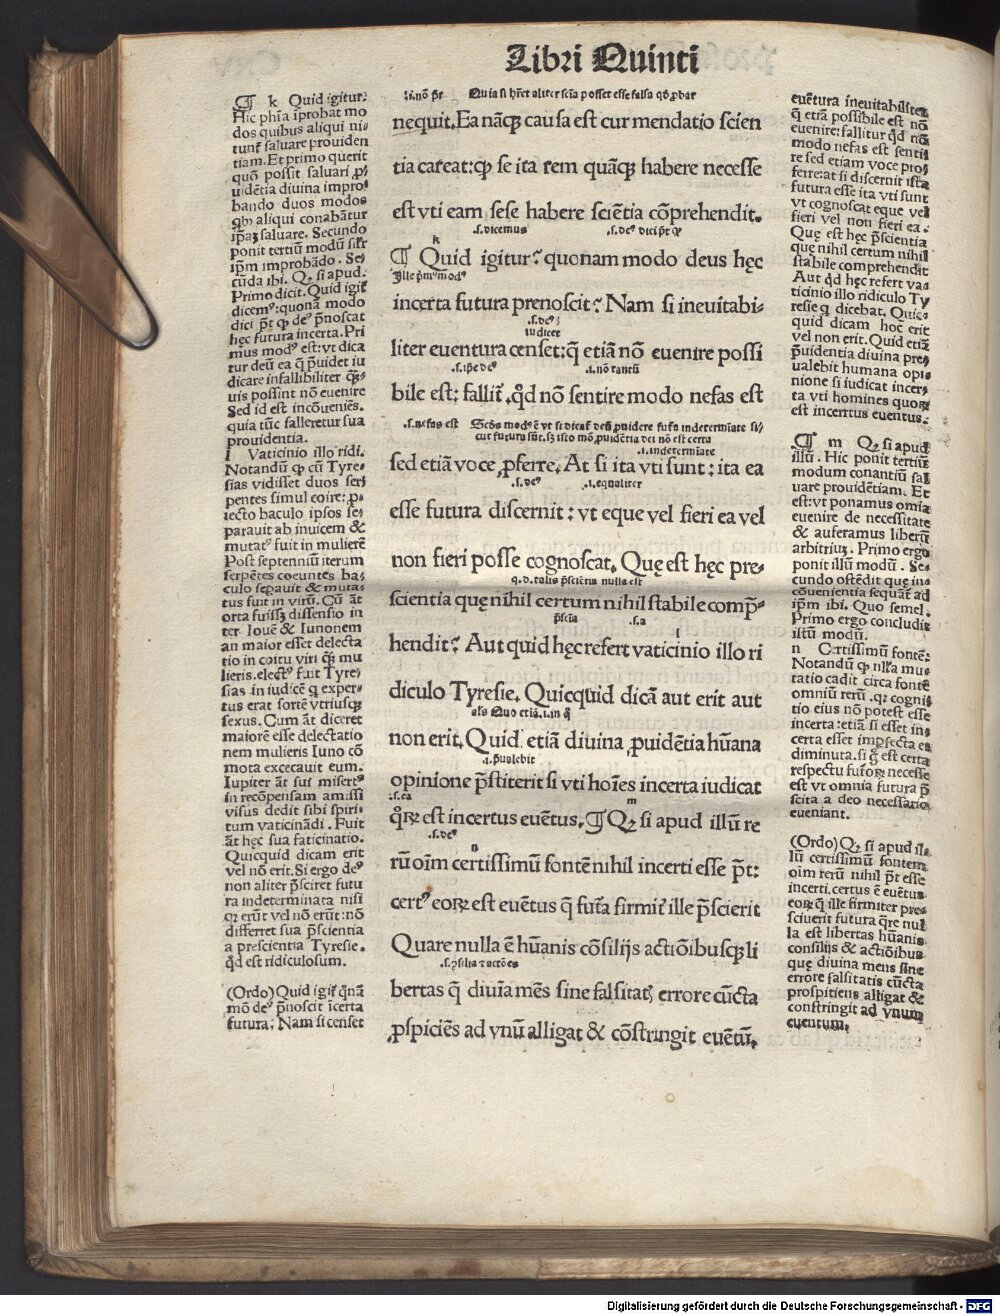 Libri Quinti
¶ k Quid igitur:
Hic phīa īprobat mo
dos quibus aliqui ni⸗
tunt̄ saluare prouiden
tiam. Et primo querit
quō possit saluari ꝓ⸗
uidētia diuina impro⸗
bando duos modos
qͥbꝰ aliqui conabātur
ip̄aꝫ saluare. Secundo
ponit tertiū modū sil̄r
ip̄m improbādo. Se⸗
cūda ibi. Qꝫ si apud.
Primo dicit. Quid igit̄
dicemꝰ: quona modo
dici p̄t ꝙ deꝰ p̄noscat
hęc futura incerta. Pri
mus modꝰ est: vt dica
tur deū ea q̄ p̄uidet iu
dicare infallibiliter qͣꝫ⸗
uis possint nō euenire
Sed id est incōueniēs.
quia tūc falleretur sua
prouidentia.
l Vaticinio illo ridi.
Notandū ꝙ cū Tyre⸗
sias vidisset duos ser⸗
pentes simul coire: p⸗
iecto baculo ipsos se⸗
parauit ab inuicem &
mutatꝰ fuit in mulierē
Post septenniū iterum
serpētes coeuntes ba⸗
culo sepauit & muta⸗
tus fuit in virū. Cū āt
orta fuiss̄ dissensio in
ter Iouē & Iunonem
an maior esset delecta
tio in coitu viri qͣꝫ mu
lieris. electꝰ fuit Tyre⸗
sias in iudicē q̄ exper⸗
tus erat sortē vtriusqꝫ
sexus. Cum āt diceret
maiorē esse delectatio
nem mulieris Iuno cō
mota excecauit eum.
Iupiter āt sui misertꝰ
in recōpensam amissi
visus dedit sibi spiri⸗
tum vaticinādi. Fuit
āt hęc sua faticinatio.
Quicquid dicam erit
vel nō erit. Si ergo deꝰ
non aliter p̄sciret futu
ra indeterminata nisi
qꝫ erūt vel nō erūt: nō
differret sua p̄scientia
a prescientia Tyresie.
qd̄ est ridiculosum.
(Ordo) Quid igit̄ qͣnā
mō deꝰ p̄noscit īcerta
futura: Nam si censet
.i. nō p̄t Quia si hr̄et aliter scīa posset esse falsa qd̄ ꝓbar
nequit. Ea nāqꝫ causa est cur mendatio scien
tia careat: ꝙ se ita rem quāqꝫ habere necesse
est vti eam sese habere sciētia cōprehendit.
.s. dicemus .s. deꝰ dici p̄t ꝙ
k
¶ Quid igitur? quonam modo deus hęc
Ille pͥmꝰ modꝰ
incerta futura prenoscit? Nam si ineuitabi⸗
.s. deꝰ
iudicet
liter euentura censet: q̄ etiā nō euenire possi
.s. ip̄e deꝰ .i. nō tantū
bile est: fallit̄. qd̄ nō sentire modo nefas est
.s. nefas est Scd̄s modꝰ ē vt si dicat̄ deū ꝓuidere fut̄a indetermīate si⸗
cut futura sūt. sꝫ isto mō ꝓuidētia dei nō est certa
.i. indetermīate
sed etiā voce ꝓferre. At si ita vti sunt: ita ea
.s. deꝰ .i. equaliter
esse futura discernit: vt eque vel fieri ea vel
non fieri posse cognoscat. Quę est hęc pre⸗
q. d. talis p̄sciētia nulla est
scientia quę nihil certum nihil stabile comp̄⸗
p̄scīa .s. a
l
hendit? Aut quid hęc refert vaticinio illo ri
diculo Tyresie. Quicquid dicā aut erit aut
al̄s Quo etiā .i. in q̄
non erit. Quid etiā diuina ꝓuidētia hūana
.i. p̄ualebit
opinione p̄stiterit si vti hoīes incerta iudicat
.s. ea m
qͦꝝ est incertus euētus. ¶ Qꝫ si apud illū re
.s. deꝰ n
rū oīm certissimū fontē nihil incerti esse p̄t:
certꝰ eoꝝ est euētus q̄ fut̄a firmit̄ ille p̄scierit
Quare nulla ē hūanis cōsilijs actiōibusqꝫ li
.s. ꝯsilia ⁊ actōes
bertas q̄ diuīa mēs sine falsitat̄ errore cūcta
ꝓspiciēs ad vnū alligat & cōstringit euētū.
euētura ineuitabiliter
q̄ etiā possibile est nō
euenire: fallitur qd̄ nō
modo nefas est senti⸗
re sed etiam voce pro⸗
ferre: at si discernit ista
futura esse ita vti sunt
vt cognoscat eque vel
fieri vel non fieri ea.
Que est hęc p̄scientia
que nihil certum nihil
stabile comprehendit
Aut qd̄ hęc refert va⸗
ticinio illo ridiculo Ty
resie q dicebat. Quic⸗
quid dicam hoc erit
vel non erit. Quid etiā
p̄uidentia diuina pre⸗
ualebit humana opi⸗
nione si iudicat incer⸗
ta vti homines quoꝝ
est incertus euentus.
¶ m Qꝫ si apud
illū. Hic ponit tertiū
modum conantiū sal
uare prouidētiam. Et
est: vt ponamus omīa
euenire de necessitate
& auferamus liberū
arbitriuꝫ. Primo ergo
ponit illū modū. Se⸗
cundo ostēdit que in⸗
cōuenientia sequāt̄ ad
ip̄m ibi. Quo semel.
Primo ergo concludit
istū modū.
n Certissimū fontē:
Notandū ꝙ nll̄a mu⸗
tatio cadit circa fontē
omniū rerū. qꝫ cogni⸗
tio eius nō potest esse
incerta: etiā si esset in⸗
certa esset imꝑfecta et
diminuta. si g̊ est certa
respectu fut̄oꝝ necesse
est vt omnia futura p̄
scita a deo necessario
eueniant.
(Ordo) Qꝫ si apud il⸗
lū certissimū fontem
oīm rerū nihil p̄t esse
incerti. certus ē euētus
eoꝝ q̄ ille firmiter pre⸗
sciuerit futura qͣre nul
la est libertas hūanis
consilijs & actiōibus
quę diuina mens sine
errore falsitatis cūcta
prospitiens alligat &
constringit ad vnum
euentum.
Digitalisierung gefördert durch die Deutsche Forschungsgemeinschaft - DFG